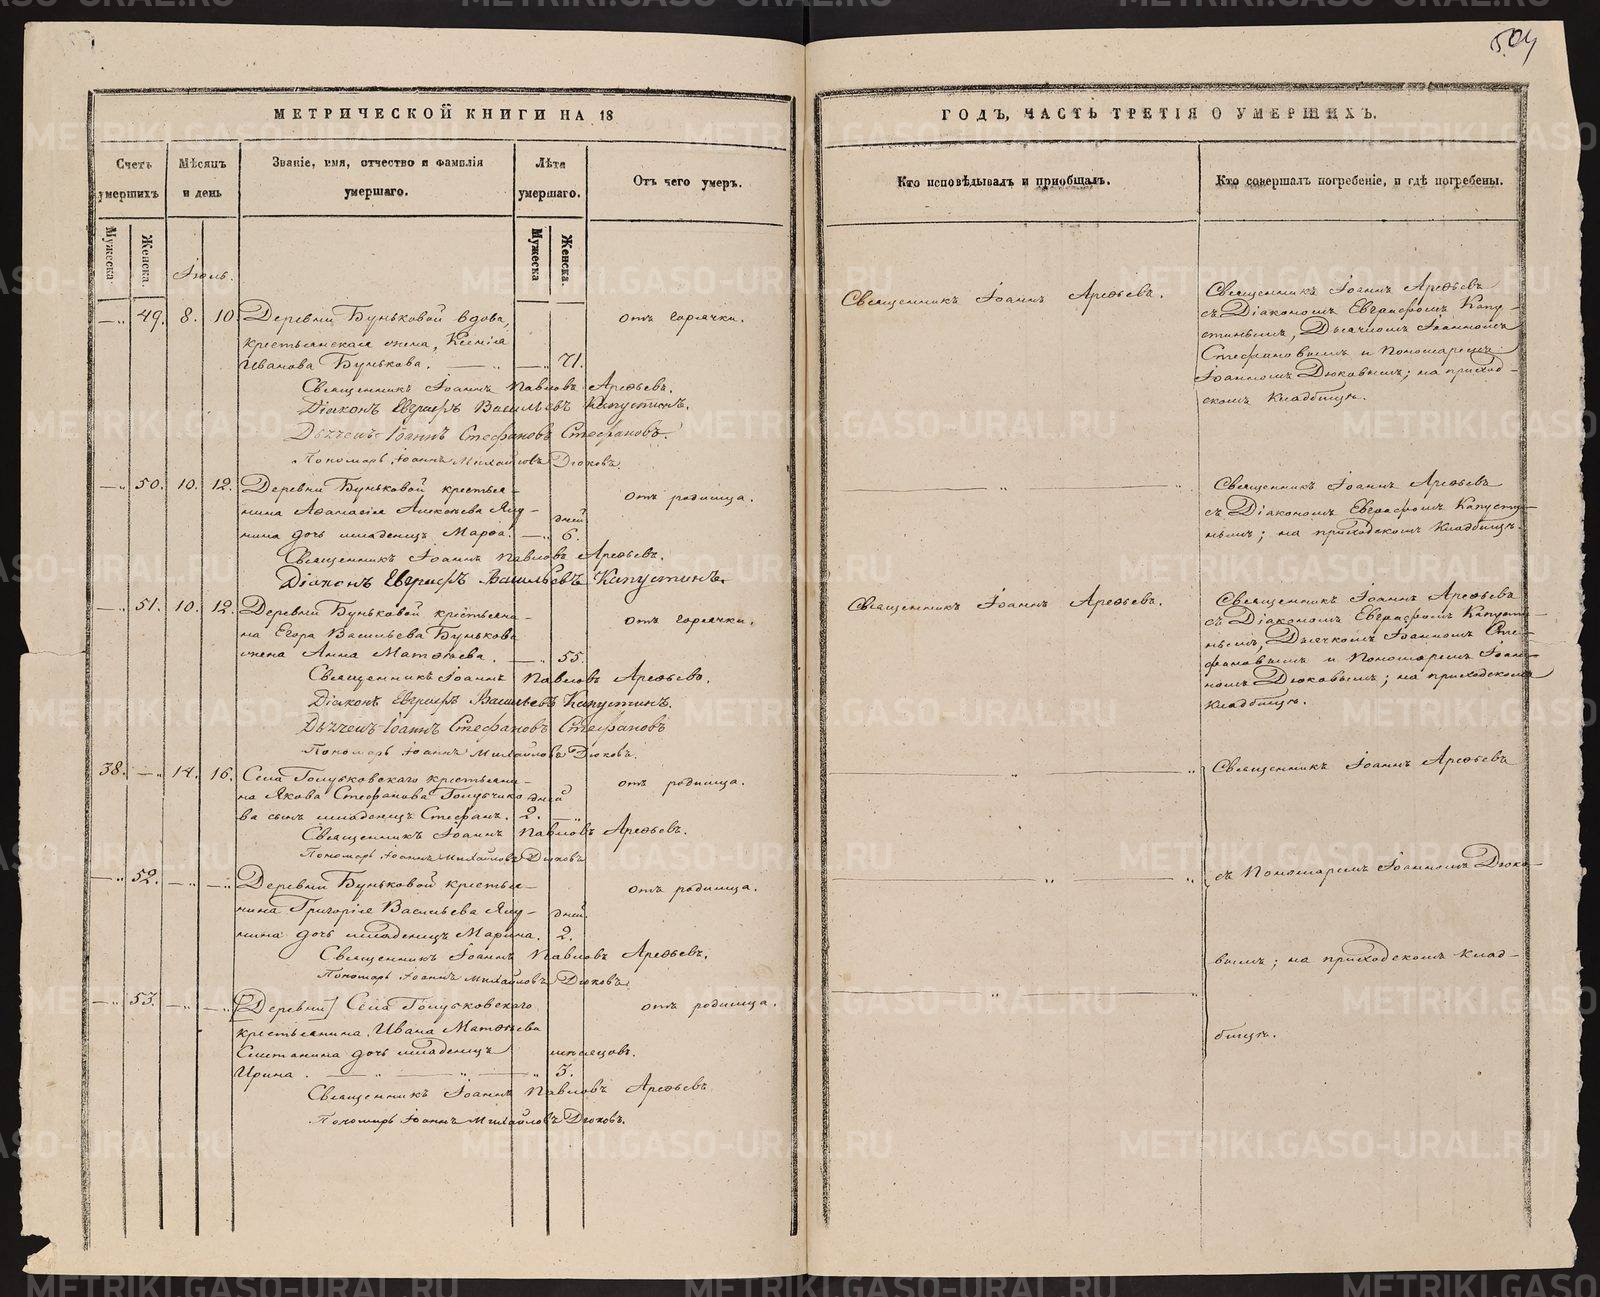 504
МЕТРИЧЕСКОЙ КНИГИ НА 18
Счетъ умершихъ
Мѣсяцъ и день
Званіе, имя, отчество и фамилія умершаго.
Лѣта умершаго.
Отъ чего умеръ.
Мужеска
Женска.
Мужеска
Женска.
Іюль.
49. 8. 10. Деревни Буньковой вдова, отъ горячки.
крестьянская жена, Ксенія
Иванова Бунькова. 71.
Священникъ Іоаннъ Павловъ Арефьевъ.
Діаконъ Евграфъ Васильевъ Капустинъ.
Дьячекъ Іоаннъ Стефановъ Стефановъ.
Пономарь Іоаннъ Михайловъ Дюковъ.
50. 10. 12. Деревни Буньковой крестья- отъ родимца.
нина Афанасія Алексѣева
дней
нина дочь младенецъ Марфа. 6.
Священникъ Іоаннъ Павловъ Арефьевъ.
Діаконъ Евграфъ Васильевъ Капустинъ.
51. 10. 12. Деревни Буньковой крестьяни- отъ горячки.
на Егора Васильева Бунькова
жена Анна Матфѣева. 55.
Священникъ Іоаннъ Павловъ Арефьевъ.
Діаконъ Евграфъ Васильевъ Капустинъ.
Дьячекъ Іоаннъ Стефановъ Стефановъ
Пономарь Іоаннъ Михайловъ Дюковъ.
38. 14. 16. Села крестьяни- отъ родимца.
на Якова Стефанова дней
ва сынъ младенецъ Стефанъ. 2.
Священникъ Іоаннъ Павловъ Арефьевъ.
Пономарь Іоаннъ Михайловъ Дюковъ
52. Деревни Буньковой крестья- отъ родимца.
нина Григорія Васильева дней.
нина дочь младенецъ Марина. 2.
Священникъ Іоаннъ Павловъ Арефьевъ.
Пономарь Іоаннъ Михайловъ Дюковъ.
53. [Деревни] Села отъ родимца.
крестьянина Ивана Матфѣева
дочь младенецъ мѣсяцовъ.
Ирина. 3.
Священникъ Іоаннъ Павловъ Арефьевъ
Пономарь Іоаннъ Михайловъ Дюковъ.
ГОДЪ, ЧАСТЬ ТРЕТІЯ О УМЕРШИХЪ.
Кто исповѣдывалъ и пріобщалъ.
Кто совершалъ погребеніе, и гдѣ погребены.
Священникъ Іоаннъ Арефьевъ.
Священникъ Іоаннъ Арефьевъ
съ Діакономъ Евграфомъ Капу-
стинымъ, Дьячкомъ Іоанномъ
Стефановымъ и Пономаремъ
Іоанномъ Дюковымъ; на приход-
скомъ кладбищѣ.
Священникъ Іоаннъ Арефьевъ
съ Діакономъ Евграфомъ Капусти-
нымъ; на приходскомъ кладбищѣ.
Священникъ Іоаннъ Арефьевъ.
Священникъ Іоаннъ Арефьевъ
съ Діакономъ Евграфомъ Капусти-
нымъ, Дьячкомъ Іоанномъ Сте-
фановымъ и Пономаремъ Іоан-
номъ Дюковымъ; на приходскомъ
кладбищѣ.
Священникъ Іоаннъ Арефьевъ
съ Пономаремъ Іоанномъ Дюко-
вымъ; на приходскомъ клад-
бищѣ.
METRIKI.GASO-URAL.RU